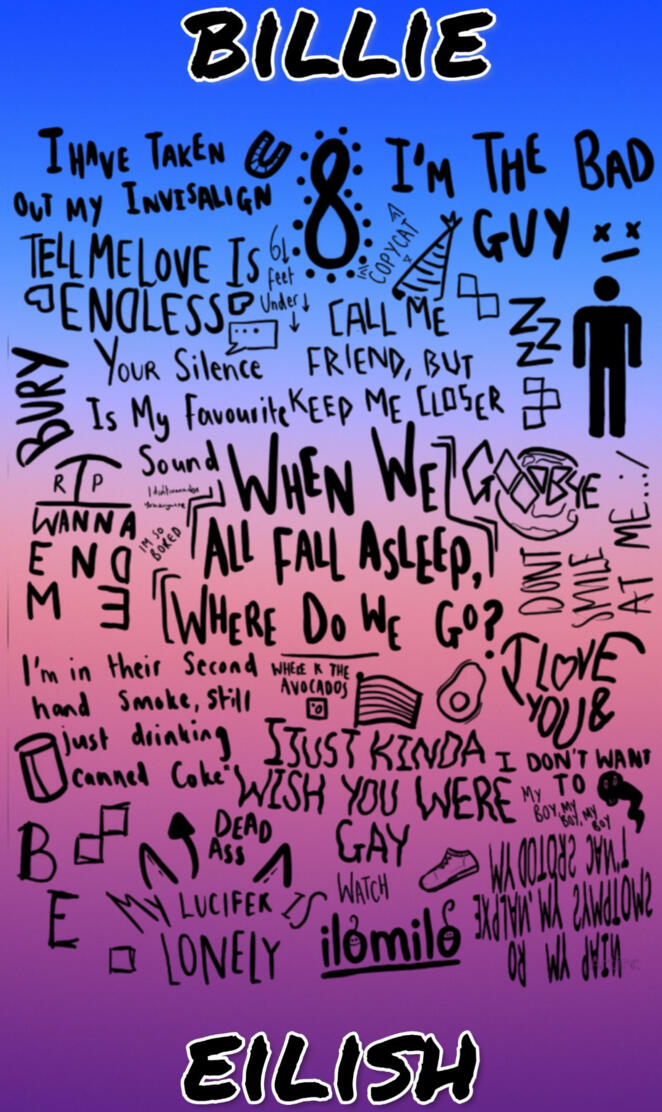 BILLIE
I HAVE TAKEN
OUT MY INVISALIGN
8
I'M THE BAD
GUY
TELL ME LOVE IS
ENDLESS
6
feet
Under
COPYCAT
CALL ME
FRIEND, BUT
KEEP ME CLOSER
ZZZ
BURY
Your Silence
Is My Favourite
Sound
R P
I didn't wanna be
You anymore
WANNA
END
ME
I'M SO
BORED
WHEN WE
ALL FALL ASLEEP,
WHERE DO WE GO?
GOODBYE
DON'T
SMILE
AT ME...:/
I'm in their Second
hand Smoke, Still
just drinking
canned Coke"
WHERE R THE
AVOCADOS
I LOVE
YOU &
I DON'T WANT
TO
BE
I JUST KINDA
WISH YOU WERE
GAY
MY
BOY, MY
BOY, MY
BOY
DEAD
ASS
MY LUCIFER IS
LONELY
WATCH
ilomilo
MY DOCTORS CAN'T
EXPLAIN, MY SYMPTOMS
OR MY PAIN
EILISH